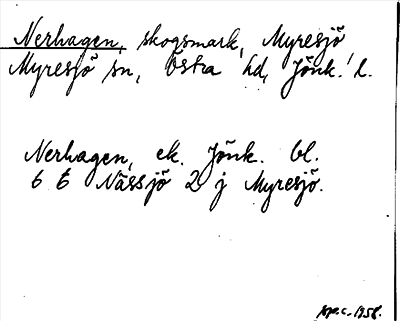 Nerhagen, skogsmark, Myresjö
Myresjö sn, Östra hd, Jönk. l.
Nerhagen, ek. Jönk. bl.
6 E Nässjö 2 j Myresjö.
1958.